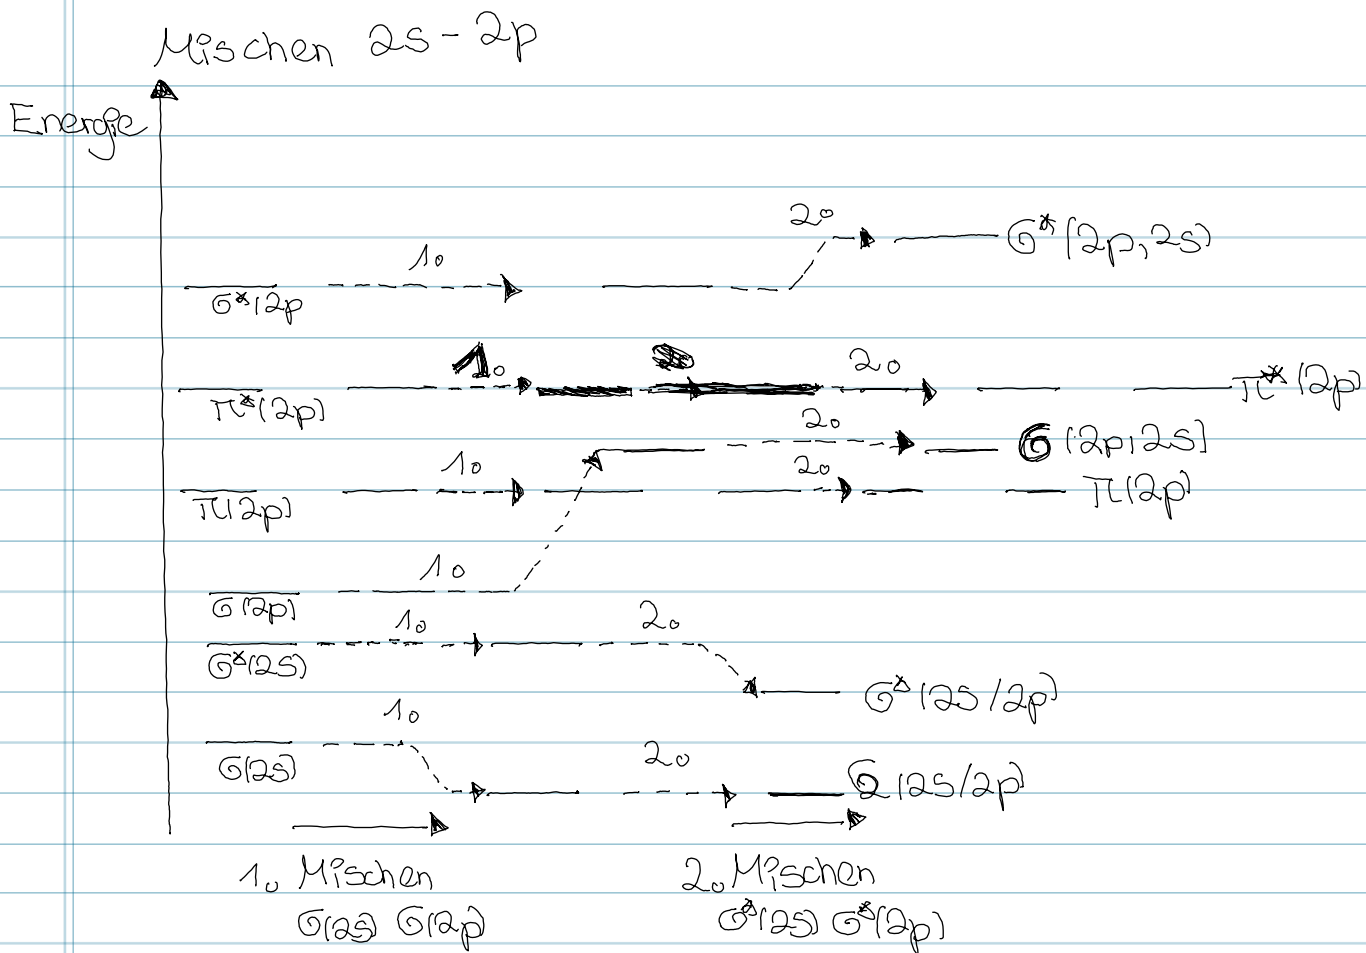 Mischen 2s - 2p
Energie
2.
σ*(2p, 2s)
1.
σ*(2p
1.
2.
π*(2p)
π*(2p)
2.
σ (2p, 2s)
1.
2.
π(2p)
π(2p)
1.
σ(2p)
1.
2.
σ*(2s)
σ*(2s/2p)
1.
σ(2s)
2.
σ (2s/2p)
1. Mischen
σ(2s) σ(2p)
2. Mischen
σ*(2s) σ*(2p)